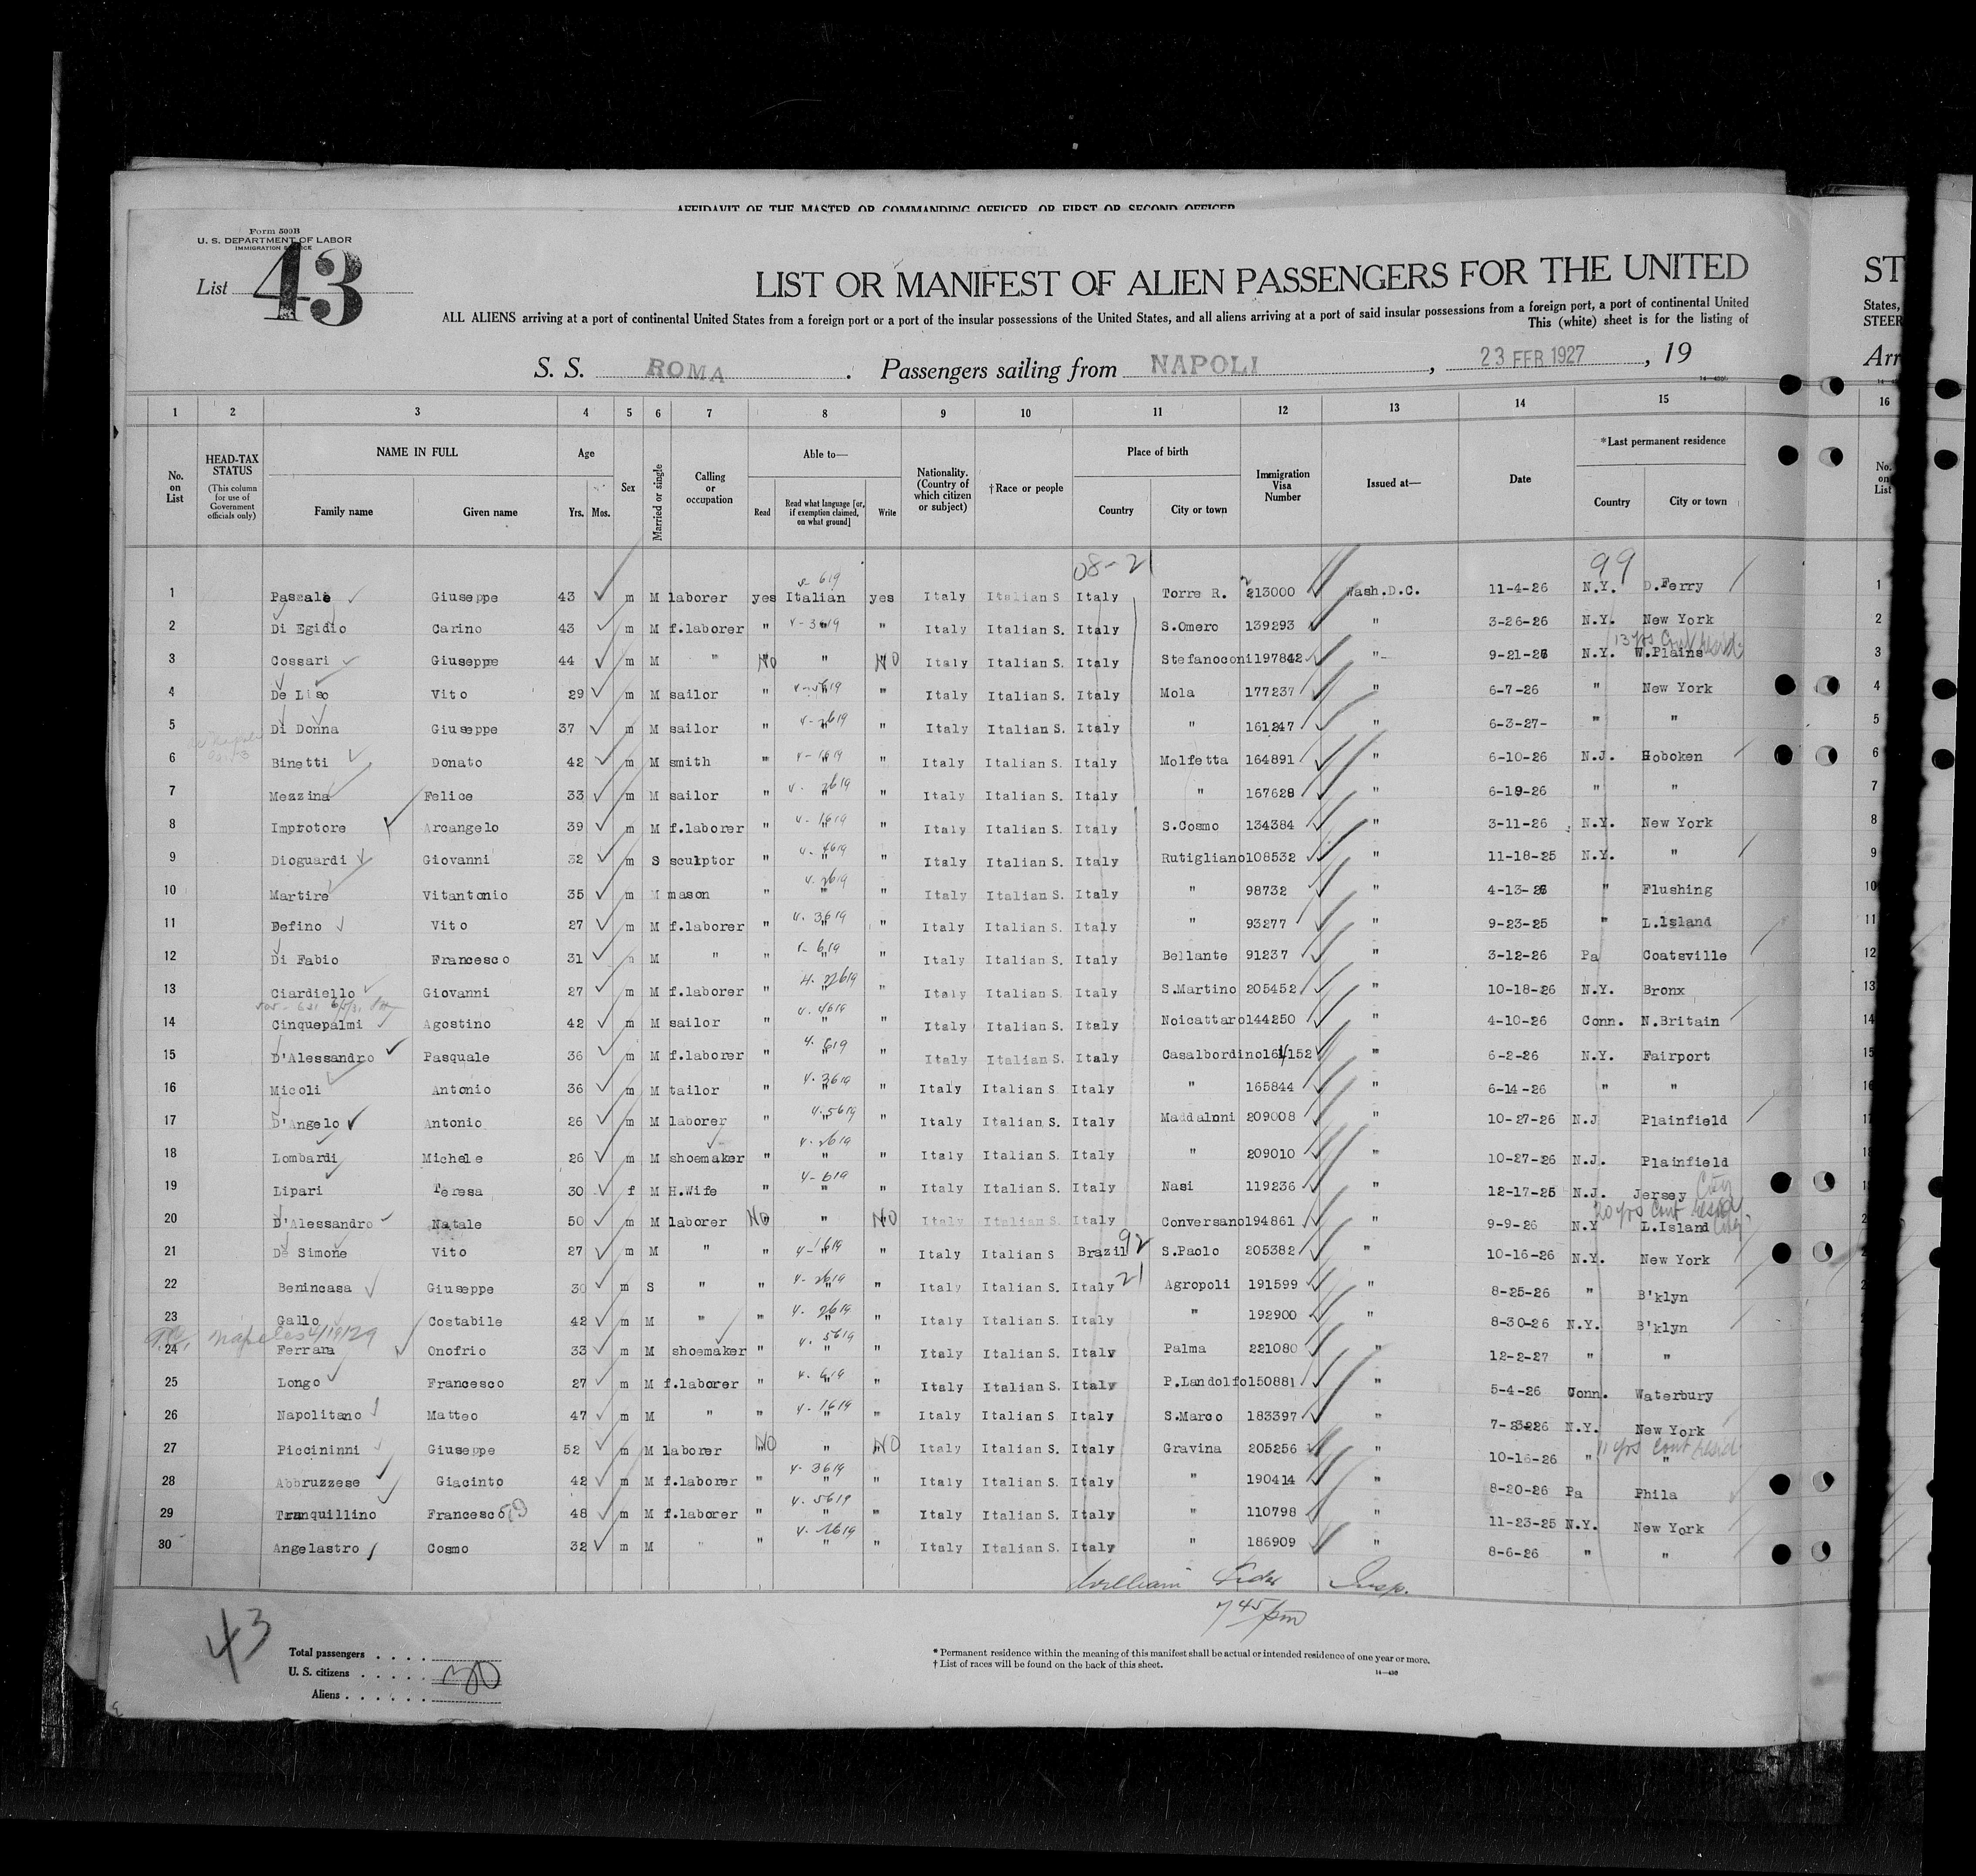 AFFIDAVIT OF THE MASTER OR COMMANDING OFFICER, OR FIRST OR SECOND OFFICER
Form 500B
U. S. DEPARTMENT OF LABOR
IMMIGRATION SERVICE
List 43
LIST OR MANIFEST OF ALIEN PASSENGERS FOR THE UNITED
ST
ALL ALIENS arriving at a port of continental United States from a foreign port or a port of the insular possessions of the United States, and all aliens arriving at a port of said insular possessions from a foreign port, a port of continental United
States,
This (white) sheet is for the listing of
STEER
S. S. ROMA. Passengers sailing from NAPOLI, 23 FEB 1927, 19
Arr
14—430
1 2 3 4 5 6 7 8 9 10 11 12 13 14 15 16
No. on List
HEAD-TAX STATUS (This column for use of Government officials only)
NAME IN FULL Family name Given name
Age Yrs. Mos.
Sex
Married or single
Calling or occupation
Able to— Read Read what language [or, if exemption claimed, on what ground] Write
Nationality. (Country of which citizen or subject)
†Race or people
Place of birth Country City or town
Immigration Visa Number
Issued at—
Date
*Last permanent residence Country City or town
No. on List
08-21 99
1 Pascale Giuseppe 43 m M laborer yes Italian yes Italy Italian S Italy Torre R. 213000 Wash.D.C. 11-4-26 N.Y. D.Ferry 1
2 Di Egidio Carino 43 m M f.laborer " " " Italy Italian S. Italy S.Omero 139293 " 3-26-26 N.Y. New York 2
13 yrs Cont resid
3 Cossari Giuseppe 44 m M " No " No Italy Italian S. Italy Stefanoconi 197842 " 9-21-26 N.Y. W.Plains 3
4 De Liso Vito 29 m M sailor " " " Italy Italian S. Italy Mola 177237 " 6-7-26 " New York 4
5 Di Donna Giuseppe 37 m M sailor " " " Italy Italian S. Italy " 161247 " 6-3-27- " " 5
6 Binetti Donato 42 m M smith " " " Italy Italian S. Italy Molfetta 164891 " 6-10-26 N.J. Hoboken 6
7 Mezzina Felice 33 m M sailor " " " Italy Italian S. Italy " 167628 " 6-19-26 " " 7
8 Improtore Arcangelo 39 m M f.laborer " " " Italy Italian S. Italy S.Cosmo 134384 " 3-11-26 N.Y. New York 8
9 Dioguardi Giovanni 32 m S sculptor " " " Italy Italian S. Italy Rutigliano 108532 " 11-18-25 N.Y. " 9
10 Martire Vitantonio 35 m M mason " " " Italy Italian S. Italy " 98732 " 4-13-26 " Flushing 10
11 Defino Vito 27 m M f.laborer " " " Italy Italian S. Italy " 93277 " 9-23-25 " L.Island 11
12 Di Fabio Francesco 31 m M " " " " Italy Italian S. Italy Bellante 91237 " 3-12-26 Pa Coatsville 12
13 Ciardiello Giovanni 27 m M f.laborer " " " Italy Italian S. Italy S.Martino 205452 " 10-18-26 N.Y. Bronx 13
14 Cinquepalmi Agostino 42 m M sailor " " " Italy Italian S. Italy Noicattaro 144250 " 4-10-26 Conn. N.Britain 14
15 D'Alessandro Pasquale 36 m M f.laborer " " " Italy Italian S. Italy Casalbordino 161152 " 6-2-26 N.Y. Fairport 15
16 Micoli Antonio 36 m M tailor " " " Italy Italian S Italy " 165844 " 6-14-26 " "
17 D'Angelo Antonio 26 m M laborer " " " Italy Italian S. Italy Maddalnni 209008 " 10-27-26 N.J Plainfield
18 Lombardi Michele 26 m M shoemaker " " " Italy Italian S. Italy " 209010 " 10-27-26 N.J. Plainfield
19 Lipari Teresa 30 f M H.Wife " " " Italy Italian S. Italy Nasi 119236 " 12-17-25 N.J. Jersey City
20 yrs Cont resid
20 D'Alessandro Natale 50 m M laborer No " No Italy Italian S. Italy Conversano 194861 " 9-9-26 N.Y L.Island City
21 De Simone Vito 27 m M " " " " Italy Italian S Brazil 92 S.Paolo 205382 " 10-16-26 N.Y. New York
22 Benincasa Giuseppe 30 m S " " " " Italy Italian S. Italy 21 Agropoli 191599 " 8-25-26 " B'klyn
23 Gallo Costabile 42 m M " " " " Italy Italian S. Italy " 192900 " 8-30-26 N.Y. B'klyn
Naples 4/19/29
24 Ferrara Onofrio 33 m M shoemaker " " " Italy Italian S. Italy Palma 221080 " 12-2-27 " "
25 Longo Francesco 27 m M f.laborer " " " Italy Italian S. Italy P.Landolfo 150881 " 5-4-26 Conn. Waterbury
26 Napolitano Matteo 47 m M " " " " Italy Italian S Italy S.Marco 183397 " N.Y. New York
11 yrs Cont resid
27 Piccininni Giuseppe 52 m M laborer No " No Italy Italian S. Italy Gravina 205256 " 10-16-26 " "
28 Abbruzzese Giacinto 42 m M f.laborer " " " Italy Italian S. Italy " 190414 " 8-20-26 Pa Phila
29 Tranquillino Francesco 48 m M f.laborer " " " Italy Italian S. Italy " 110798 " 11-23-25 N.Y. New York
30 Angelastro Cosmo 32 m M " " " " Italy Italian S. Italy " 186909 " 8-6-26 " "
William Insp.
7 45/pm
43
Total passengers
U. S. citizens 30
Aliens
* Permanent residence within the meaning of this manifest shall be actual or intended residence of one year or more.
† List of races will be found on the back of this sheet.
14—430